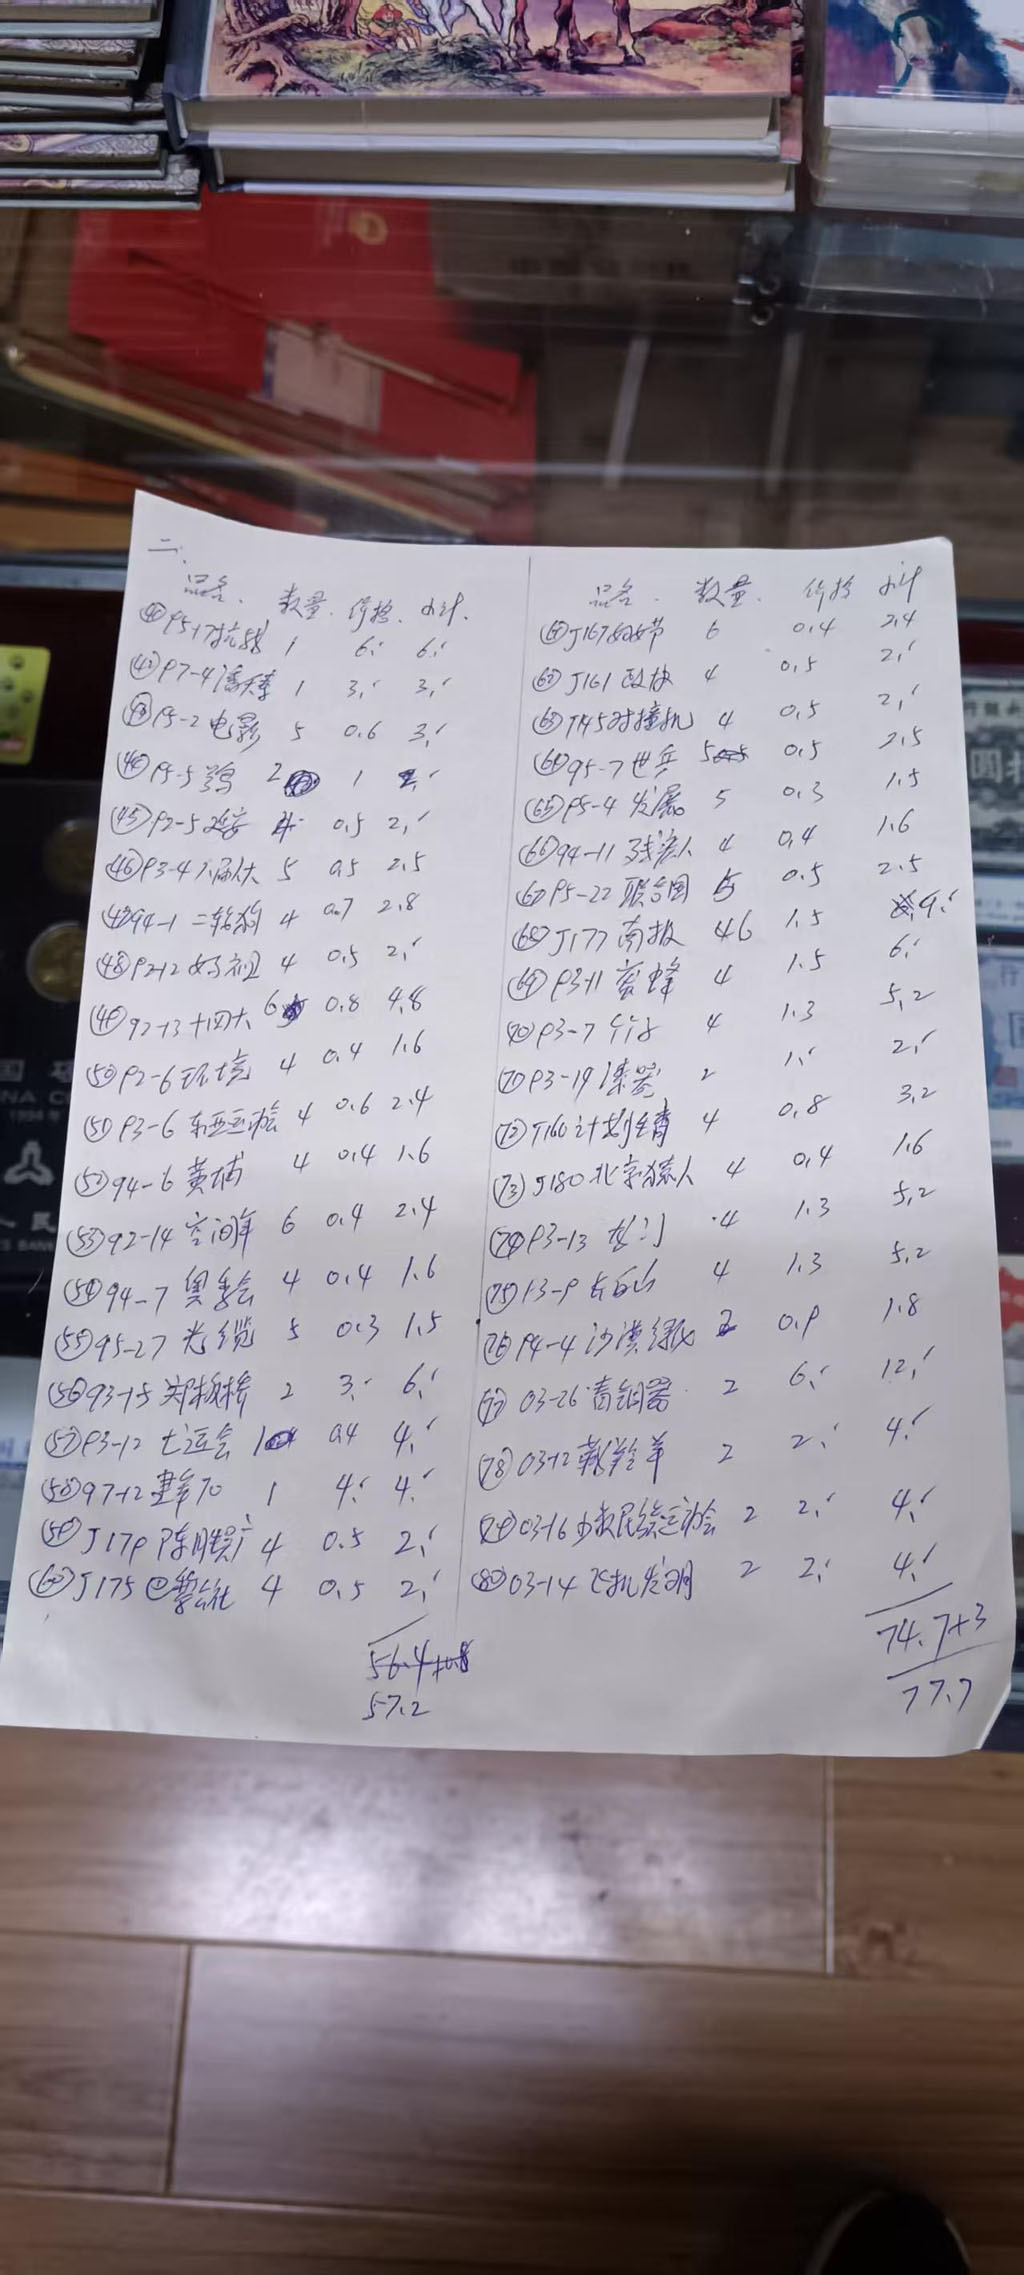 二.
品名. 数量. 价格. 小计.
㊶95-17抗战 1 6.- 6.-
㊷97-4潘天寿 1 3.- 3.-
㊸95-2电影 5 0.6 3.-
㊹95-5鹤 2 1 2.-
㊺92-5延安 4 0.5 2.-
㊻93-4八届人大 5 0.5 2.5
㊼94-1二轮狗 4 0.7 2.8
㊽92-12妈祖 4 0.5 2.-
㊾92-13十四大 6 0.8 4.8
㊿92-6环境 4 0.4 1.6
(51)93-6东亚运动会 4 0.6 2.4
(52)94-6黄埔 4 0.4 1.6
(53)92-14空间年 6 0.4 2.4
(54)94-7奥委会 4 0.4 1.6
(55)95-27光缆 5 0.3 1.5
(56)93-15郑板桥 2 3.- 6.-
(57)93-12七运会 10 0.4 4.-
(58)97-12建军70 1 4.- 4.-
(59)J179陈胜吴广 4 0.5 2.-
(60)J175 4 0.5 2.-
56.4+0.8
57.2
品名. 数量. 价格 小计
(61)J167妇女节 6 0.4 2.4
(62)J161政协 4 0.5 2.-
(63)T145对撞机 4 0.5 2.-
(64)95-7世乒 5 0.5 2.5
(65)95-4发展 5 0.3 1.5
(66)94-11残疾人 4 0.4 1.6
(67)95-22联合国 5 0.5 2.5
(68)J177南极 6 1.5 9.-
(69)93-11蜜蜂 4 1.5 6.-
(70)93-7竹子 4 1.3 5.2
(71)93-14漆器 2 1.- 2.-
(72)T160计划生育 4 0.8 3.2
(73)J180北京猿人 4 0.4 1.6
(74)93-13龙门 4 1.3 5.2
(75)93-9长白山 4 1.3 5.2
(76)94-4沙漠绿化 2 0.9 1.8
(77)03-26青铜器 2 6.- 12.-
(78)03-12藏羚羊 2 2.- 4.-
(79)03-16少数民族运动会 2 2.- 4.-
(80)03-14飞机发明 2 2.- 4.-
74.7+3
77.7